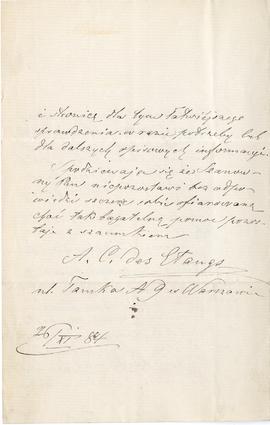 i stronicę dla tym łatwiejszego
sprawdzenia w razie potrzeby lub
dla dalszych spisowych informacyi.
Spodziewając się że Szanow-
ny Pan niepozostawi bez odpo-
wiedzi szczerze sobie ofiarowaną
choć tak bagatelną pomoc pozo-
staję z szacunkiem
A. C. des Etangs
ul. Tamka № 9 w Warszawie
26/XI 84